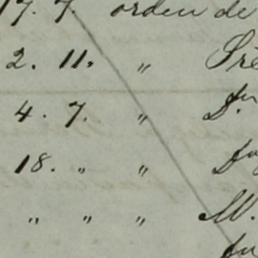 17. 7. orden de
2. 11. „ Sre
4. 7. „ D.
18. „ „
„ „ „ M.